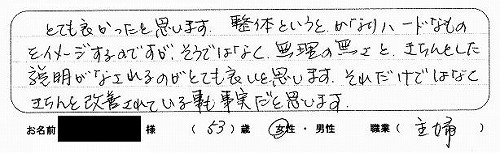 とても良かったと思います。整体というと、かなりハードなもの
をイメージするのですが、そうではなく、無理の無さと、きちんとした
説明がなされるのがとても良いと思います。それだけではなく
きちんと改善されている事も事実だと思います。
お名前 様 （53）歳 女性・男性 職業（主婦